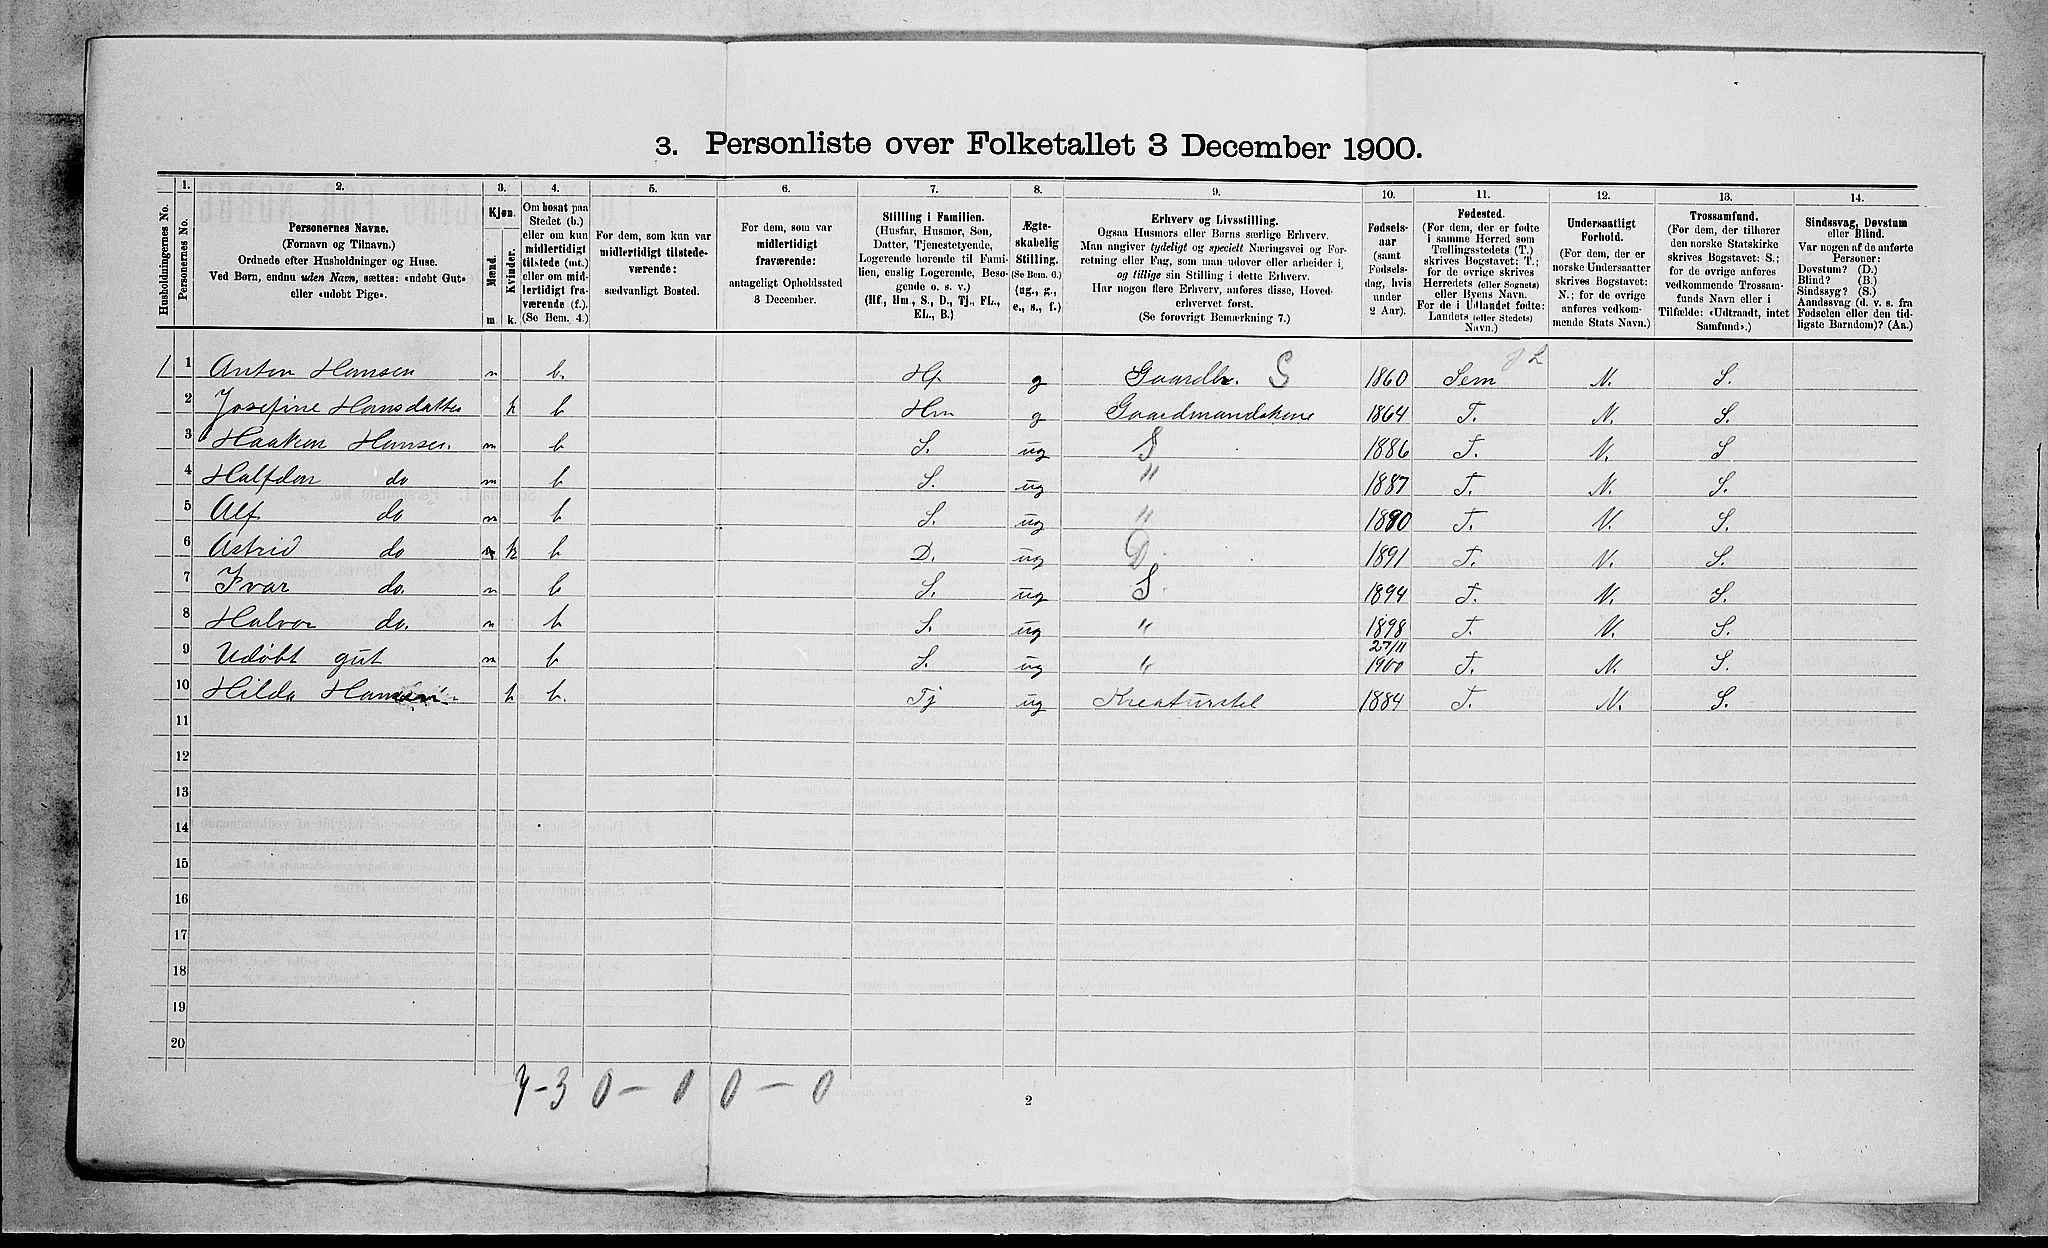 3. Personliste over Folketallet 3 December 1900.
Husholdningernes No.
1. Personernes No.
2. Personernes Navne. (Fornavn og Tilnavn.) Ordnede efter Husholdninger og Huse. Ved Børn, endnu uden Navn, sættes: «udøbt Gut» eller «udøbt Pige».
3. Kjøn. Mænd. m. Kvinder. k.
4. Om bosat paa Stedet (b.) eller om kun midlertidigt tilstede (mt.) eller om midlertidigt fraværende (f.). (Se Bem. 4.)
5. For dem, som kun var midlertidigt tilstedeværende: sædvanligt Bosted.
6. For dem, som var midlertidigt fraværende: antageligt Opholdssted 3 December.
7. Stilling i Familien. (Husfar, Husmor, Søn, Datter, Tjenestetyende, Logerende hørende til Familien, enslig Logerende, Besøgende o. s. v.) (Hf., Hm., S., D., Tj., FL., EL., B.)
8. Ægteskabelig Stilling. (Se Bem. 6.) (ug., g., e., s., f.)
9. Erhverv og Livsstilling. Ogsaa Husmors eller Børns særlige Erhverv. Man angiver tydeligt og specielt Næringsvei og Forretning eller Fag, som man udøver eller arbeider i, og tillige sin Stilling i dette Erhverv. Har nogen flere Erhverv, anføres disse, Hovederhvervet først. (Se forøvrigt Bemærkning 7.)
10. Fødselsaar (samt Fødselsdag, hvis under 2 Aar).
11. Fødested. (For dem, der er fødte i samme Herred som Tællingsstedets (T.) skrives Bogstavet: T.; for de øvrige skrives Herredets (eller Sognets) eller Byens Navn. For de i Udlandet fødte: Landets (eller Stedets) Navn.)
12. Undersaatligt Forhold. (For dem, der er norske Undersaatter skrives Bogstavet: N.; for de øvrige anføres vedkommende Stats Navn.)
13. Trossamfund. (For dem, der tilhører den norske Statskirke skrives Bogstavet: S.; for de øvrige anføres vedkommende Trossamfunds Navn eller i Tilfælde: «Udtraadt, intet Samfund».)
14. Sindssvag, Døvstum eller Blind. Var nogen af de anførte Personer: Døvstum? (D.) Blind? (B.) Sindssyg? (S.) Aandssvag (d. v. s. fra Fødselen eller den tidligste Barndom)? (Aa.)
1 1 Anton Hansen m b. Hf g Gaardbr. S 1860 Sem N. S.
2 Josefine Hansdatter k b Hm g Gaardmandskone 1864 T. N. S.
3 Haakon Hansen. m b S. ug S 1886 T. N. S
4 Halfdan do m b S. ug " 1887 T. N. S.
5 Alf do m b S. ug " 1890 T. N. S.
6 Astrid do k b D. ug D 1891 T. N. S.
7 Ivar do. m b S. ug S 1894 T. N. S.
8 Halvor do. m b. S. ug " 1898 T. N. S.
9 Udøbt gut m b S. ug " 27/11 1900 T. N. S.
10 Hilda Hansen. k b. Tj ug Kreaturstel 1884 T. N. S.
11
12
13
14
15
16
17
18
19
20
7-3 0-0 0-0
2